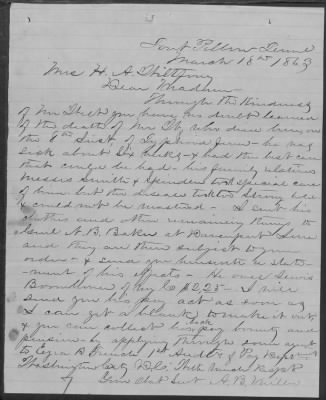 Fort Pillow Tenn
March 18th 1863
Mrs H. A.
Dear Madam
Through the Kindness
of Mr you have no doubt learned
of the death of Mr who died here on
the 6th Inst of Typhoid he was
sick about six weeks & had the best care
that could be had his friends
Messrs Smith & took special care
of him but the disease took too strong hold
& could not be mastered. I sent his
clothes and other remaining things to
A. B. Baker at Davenport
and they are there subject to your
orders & send you herewith a state-
ment of his effects He owes Lewis
of my Co $2.25 I will
send you his pay act as soon as
I can get a blank to make it out
& you can collect his back pay bounty and
pension by applying through some agent
to Ezra B French 2nd Auditor of Pay Dept
Washington City D.C. With much respect
Your Obt Svt A. B. Miller